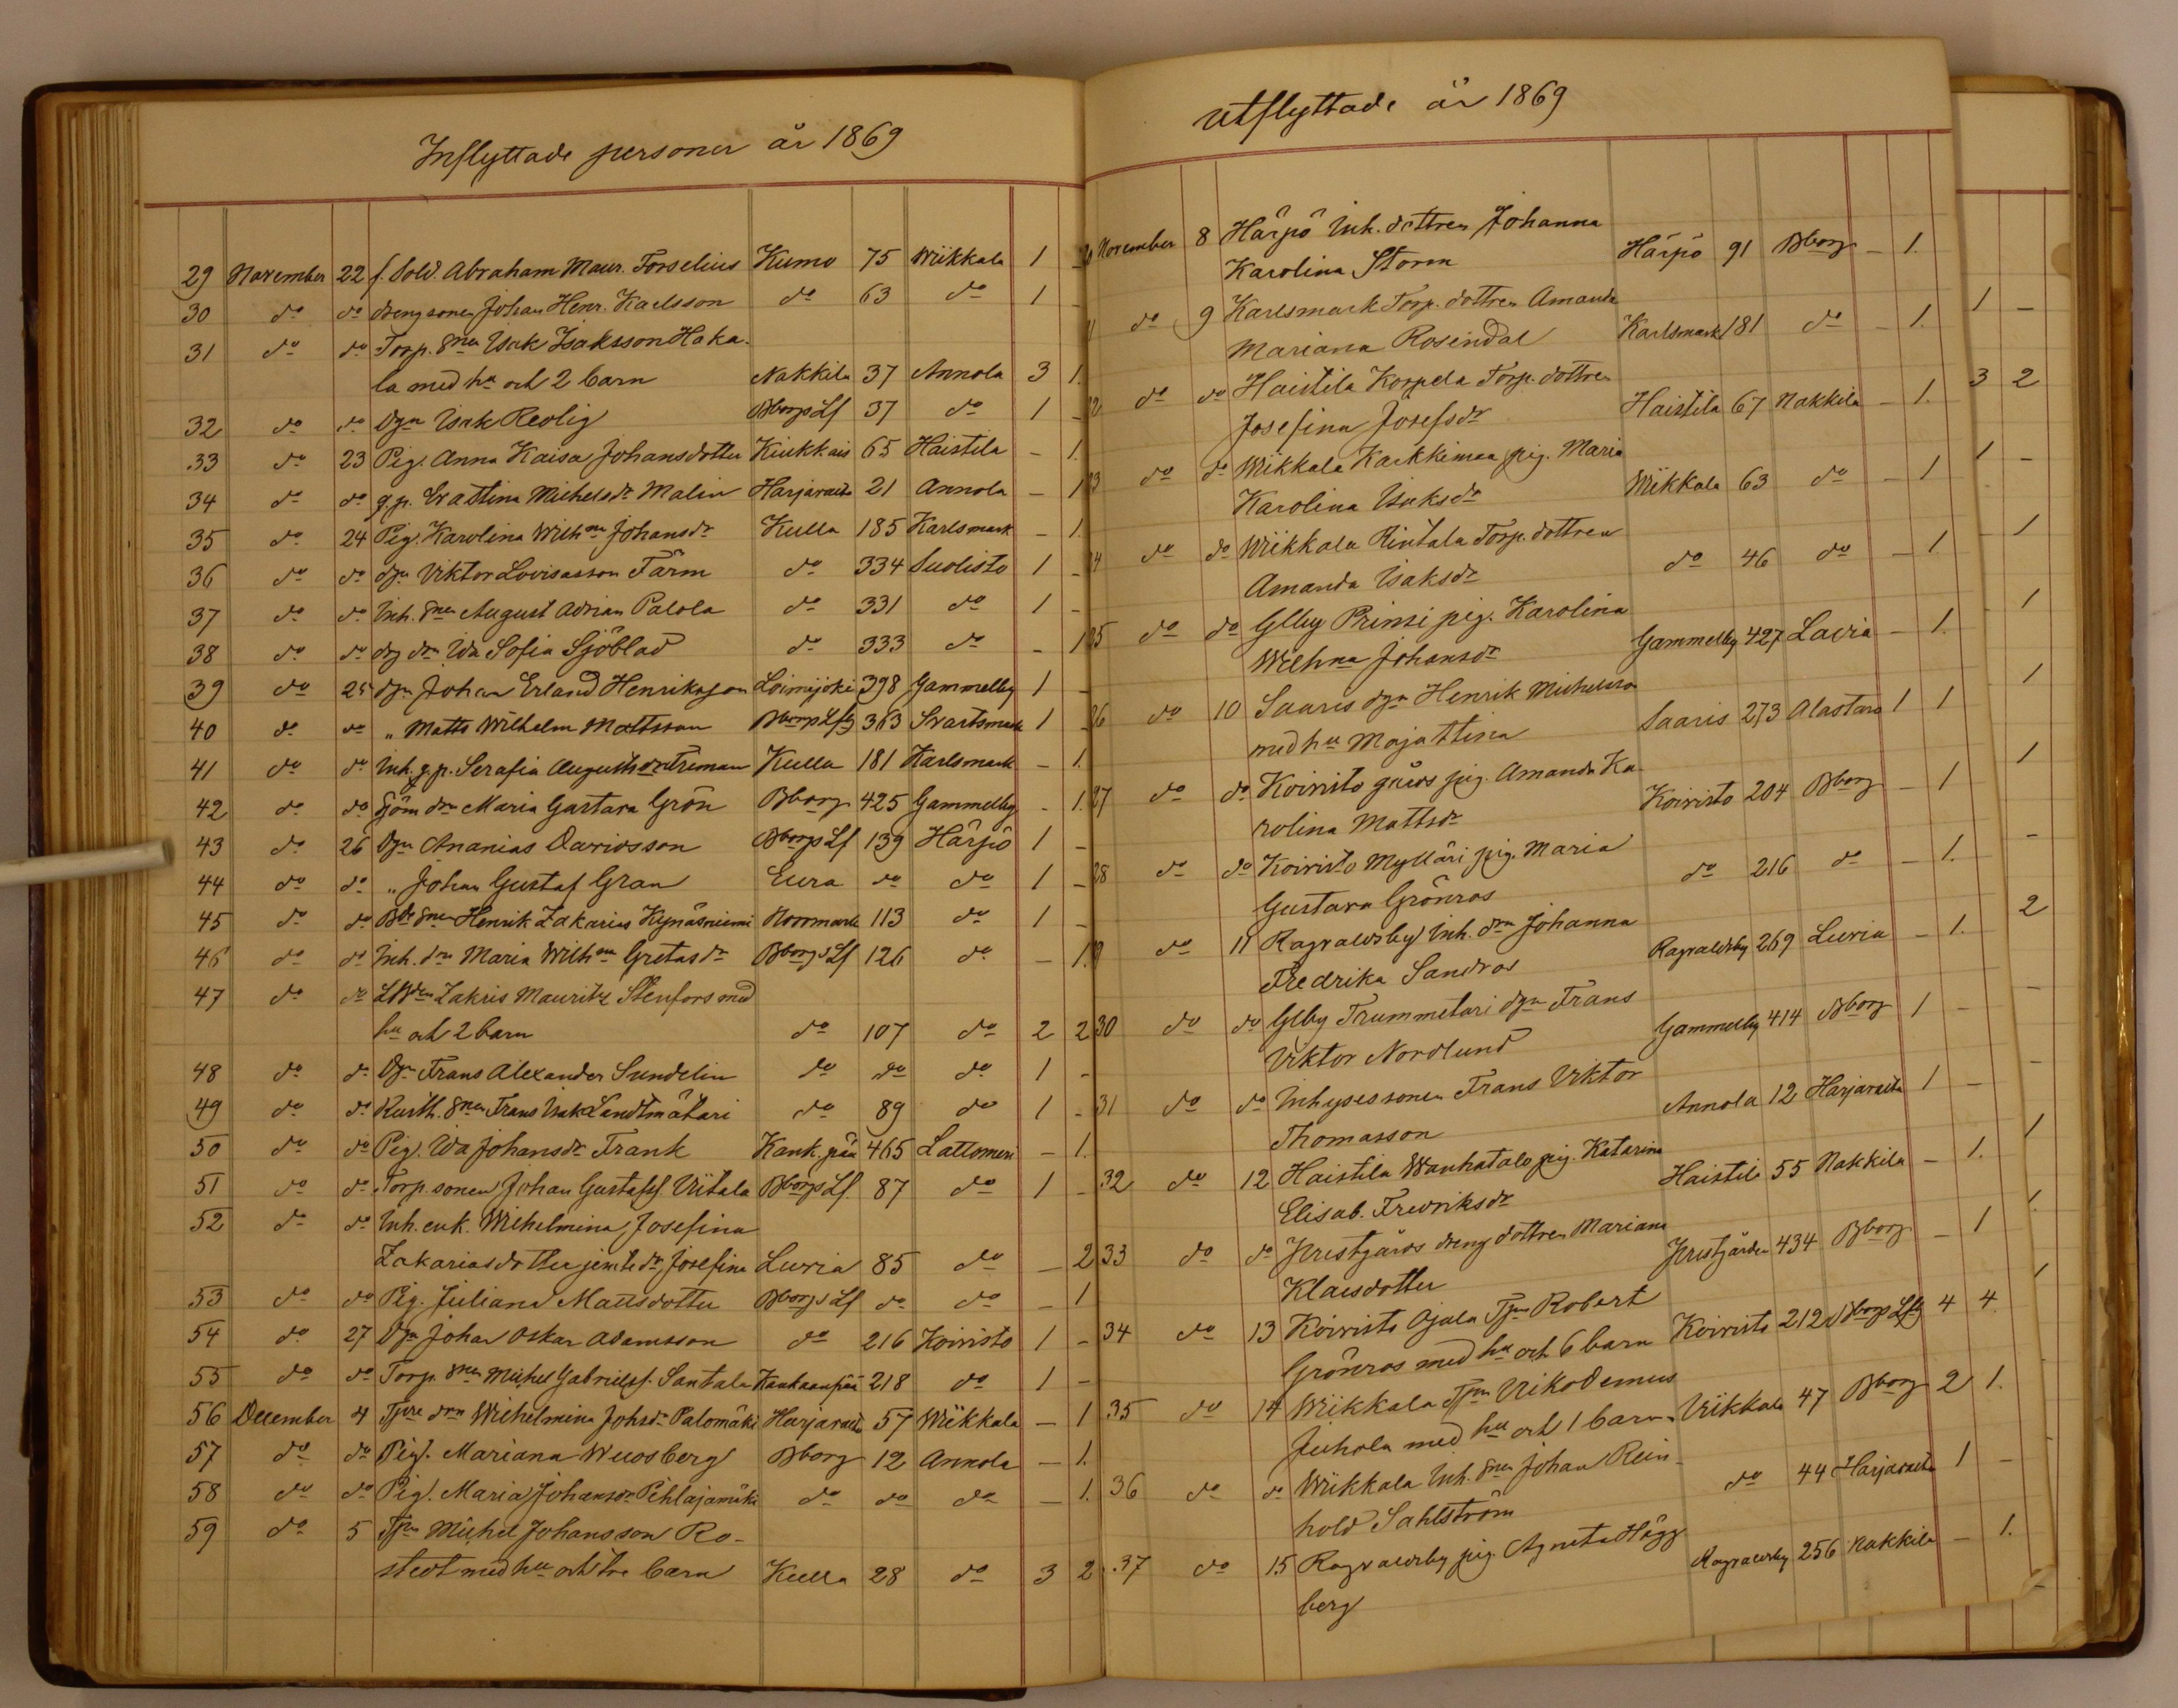 Inflyttade personer år 1869
29 November 22 f. Sold. Abraham Maur. Forselius Kumo 75 Wiikkala 1 -
30 do do drengsonen Johan Henr. Kaelsson do 63 do 1 -
31 do do Torp. snen Isak Isaksson Haka-
la med hu och 2 barn Nakkila 37 Annola 3 1.
32 do do Dgn Isak Rodig Bborgs Lf 37 do 1 -
33 do 23 Pig. Anna Kaisa Johansdotter Kiukkais 65 Haistila - 1.
34 do do g.p. Eva Stina Michelsdr Malin Harjavalta 21 Annola - 1
35 do 24 Pig. Karolina Wilhna Johansdr Kulla 185 Karlsmark - 1.
36 do do dgn Viktor Lovisasson Färm do 334 Suolisto 1 -
37 do do Inh. snen August Adrian Palola do 331 do 1 -
38 do do dg drn Ida Sofia Sjöblad do 333 do - 1
39 do 25 dgn Johan Erland Henriksson Loimijoki 398 Gammelby 1 -
40 do do " Matts Wilhelm Mattsson Bborgs Lfg 363 Svartsmark 1 -
41 do do Inh. g.p. Serafia Augustsdr Treman Kulla 181 Karlsmark - 1.
42 do do Sjöm drn Maria Gustava Grön Bborg 425 Gammelby - 1.
43 do 26 Dgn Ananias Davidsson Bborgs Lf 139 Härpö 1 -
44 do do " Johan Gustaf Gran Eura do do 1 -
45 do do Bde snen Henrik Zakarias Kynäsniemi Norrmark 113 do 1 -
46 do do Inh. drn Maria Wilhna Gretasdr Bborgs Lf 126 do - 1.
47 do do Zakris Mauritz Stenfors med
hu och 2 barn do 107 do 2 2
48 do do Dgn Frans Alexander Sundelin do do do 1 -
49 do do Rusth. snen Frans Isak Landtmätari do 89 do 1 -
50 do do Pig. Ida Johansdr Frank Kank.pää 465 Lattomeri - 1.
51 do do Torp. sonen Johan Gustafsf. Viitala Bborgs Lf. 87 do 1 -
52 do do Inh. enk. Wilhelmina Josefina
Zakariasdotter jemte dr Josefina Luvia 85 do - 2
53 do do Pig. Juliana Mattsdotter Bborgs Lf do do - 1
54 do 27 Dgn Johan Oskar Adamsson do 216 Koivisto 1 -
55 do do Torp. snen Michel Gabrielsf. Santala Kankaanpää 218 do 1 -
56 December 4 Tjvre drn Wilhelmina Johsdr Palomäki Harjavalta 57 Wiikkala - 1
57 do do Pig. Mariana Weusberg Bborg 12 Annola - 1.
58 do do Pig. Maria Johansdr Pihlajamäki do do do - 1.
59 do 5 Tpn Michel Johansson Ro-
stedt med hu och tre barn Kulla 28 do 3 2
utflyttade år 1869
20 November 8 Härpö Inh. dottren Johanna
Karolina Storm Härpö 91 Bborg - 1.
21 do 9 Karlsmark Torp. dottren Amanda
Mariana Rosendal Karlsmark 181 do - 1.
22 do do Haistila Korpela Torp. dottren
Josefina Josefsdr Haistila 67 Nakkila - 1.
23 do do Wiikkala Karkkimaa pig. Maria
Karolina Isaksdr Wiikkala 63 do - 1
24 do do Wiikkala Rintala Torp. dottren
Amanda Isaksdr do 46 do - 1
25 do do Glby Prinsi pig. Karolina
Wilhna Johansdr Gammelby 427 Lavia - 1.
26 do 10 Saaris dgn Henrik Michelsson
med hu Maja Stina Saaris 273 Alastaro 1 1
27 do do Koivisto gårds pig. Amanda Ka-
rolina Mattsdr Koivisto 204 Bborg - 1
28 do do Koivisto Mylläri pig. Maria
Gustava Grönros do 216 do - 1.
29 do 11 Ragvaldsby Inh. drn Johanna
Fredrika Sandros Ragvaldsby 269 Luvia - 1.
30 do do Glby Trummetari dgn Frans
Viktor Nordlund Gammelby 414 Bborg 1 -
31 do do Inhysessonen Frans Viktor
Thomasson Annola 12 Harjavalta 1 -
32 do 12 Haistila Wanhatalo pig. Katarina
Elisab. Fredriksdr Haistila 55 Nakkila - 1.
33 do do Prestgårds dreng dottren Mariana
Klaesdotter Prestgården 434 Bborg - 1
34 do 13 Koivisto Ojala Tpn Robert
Grönros med hu och 6 barn Koivisto 212 Bborgs Lfg 4 4.
35 do 14 Wiikkala Tpn Nikodemus
Juhola med hu och 1 barn Viikkala 47 Bborg 2 1.
36 do do Wiikkala Inh. snen Johan Rein-
hold Sahlström do 44 Harjavalta 1 -
37 do 15 Ragvaldsby pig. Agneta Hägg
berg Ragvaldsby 256 Nakkila - 1.
1 -
3 2
1 -
- 1
- 1
1
1
-
2
-
-
1
1
1
-